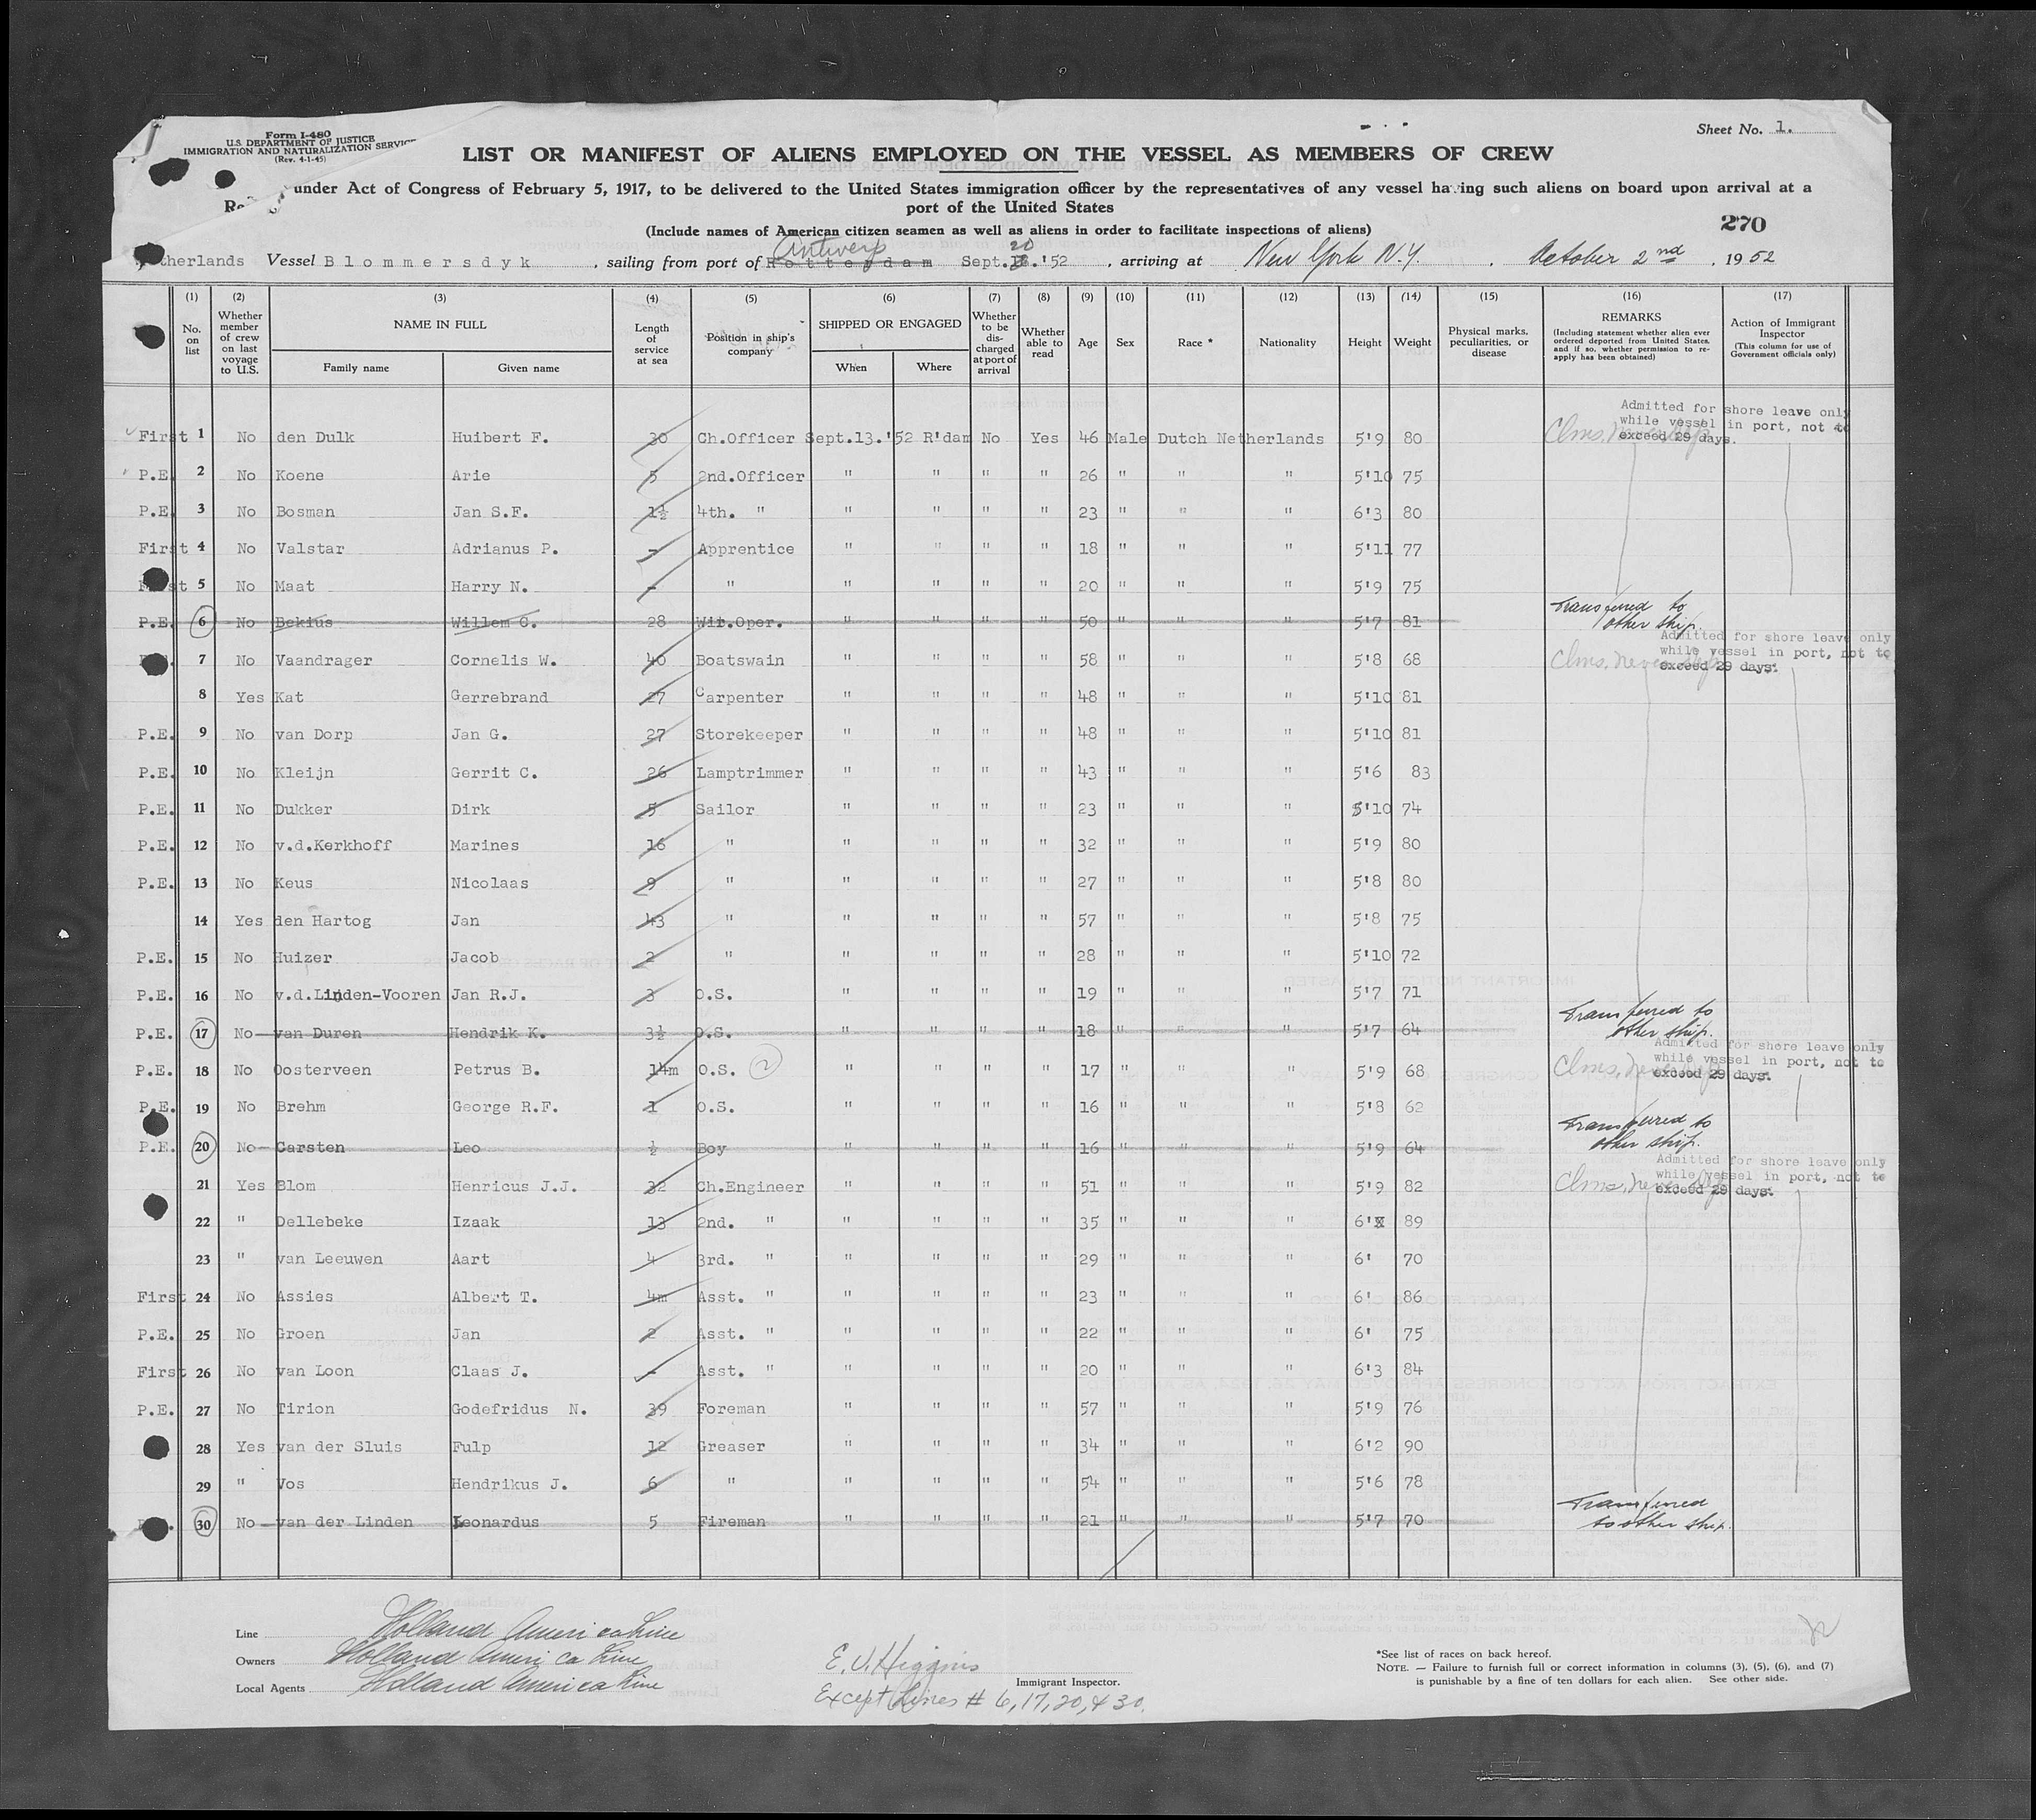 Form I-480
U.S. DEPARTMENT OF JUSTICE
IMMIGRATION AND NATURALIZATION SERVICE
(Rev. 4-1-45)
Sheet No. 1.
LIST OR MANIFEST OF ALIENS EMPLOYED ON THE VESSEL AS MEMBERS OF CREW
under Act of Congress of February 5, 1917, to be delivered to the United States immigration officer by the representatives of any vessel having such aliens on board upon arrival at a
port of the United States
270
(Include names of American citizen seamen as well as aliens in order to facilitate inspections of aliens)
Antwerp 20
therlands Vessel Blommersdyk, sailing from port of Rotterdam Sept. '52, arriving at New York N.Y. October 2nd, 1952
(1) (2) (3) (4) (5) (6) (7) (8) (9) (10) (11) (12) (13) (14) (15) (16) (17)
No. on list
Whether member of crew on last voyage to U.S.
NAME IN FULL
Family name
Given name
Length of service at sea
Position in ship's company
SHIPPED OR ENGAGED
When
Where
Whether to be discharged at port of arrival
Whether able to read
Age
Sex
Race *
Nationality
Height
Weight
Physical marks, peculiarities, or disease
REMARKS
(Including statement whether alien ever ordered deported from United States, and if so, whether permission to re-apply has been obtained)
Action of Immigrant Inspector
(This column for use of Government officials only)
First 1 No den Dulk Huibert F. 30 Ch.Officer Sept.13.'52 R'dam No Yes 46 Male Dutch Netherlands 5'9 80 Clms, never dep. Admitted for shore leave only while vessel in port, not to exceed 29 days.
P.E. 2 No Koene Arie 5 2nd.Officer " " " " 26 " " " 5'10 75
P.E. 3 No Bosman Jan S.F. 1½ 4th. " " " " " 23 " " " 6'3 80
First 4 No Valstar Adrianus P. - Apprentice " " " " 18 " " " 5'11 77
st 5 No Maat Harry N. - " " " " " 20 " " " 5'9 75
P.E. 6 No Bekius Willem C. 28 Wir.Oper. " " " " 50 " " " 5'7 81 Transferred to other ship.
7 No Vaandrager Cornelis W. 40 Boatswain " " " " 58 " " " 5'8 68 Clms, never dep. Admitted for shore leave only while vessel in port, not to exceed 29 days.
8 Yes Kat Gerrebrand 27 Carpenter " " " " 48 " " " 5'10 81
P.E. 9 No van Dorp Jan G. 27 Storekeeper " " " " 48 " " " 5'10 81
P.E. 10 No Kleijn Gerrit C. 26 Lamptrimmer " " " " 43 " " " 5'6 83
P.E. 11 No Dukker Dirk 5 Sailor " " " " 23 " " " 5'10 74
P.E. 12 No v.d.Kerkhoff Marines 16 " " " " " 32 " " " 5'9 80
P.E. 13 No Keus Nicolaas 9 " " " " " 27 " " " 5'8 80
14 Yes den Hartog Jan 43 " " " " " 57 " " " 5'8 75
P.E. 15 No Huizer Jacob 2 " " " " " 28 " " " 5'10 72
P.E. 16 No v.d.Linden-Vooren Jan R.J. 3 O.S. " " " " 19 " " " 5'7 71
P.E. 17 No van Duren Hendrik K. 3½ O.S. " " " " 18 " " " 5'7 64 Transferred to other ship.
P.E. 18 No Oosterveen Petrus B. 14m O.S. 2 " " " " 17 " " " 5'9 68 Clms, never dep. Admitted for shore leave only while vessel in port, not to exceed 29 days.
P.E. 19 No Brehm George R.F. 1 O.S. " " " " 16 " " " 5'8 62
P.E. 20 No Carsten Leo ½ Boy " " " " 16 " " " 5'9 64 Transferred to other ship.
21 Yes Blom Henricus J.J. 32 Ch.Engineer " " " " 51 " " " 5'9 82 Clms, never dep. Admitted for shore leave only while vessel in port, not to exceed 29 days.
22 " Dellebeke Izaak 13 2nd. " " " " " 35 " " " 6' 89
23 " van Leeuwen Aart 4 3rd. " " " " " 29 " " " 6' 70
First 24 No Assies Albert T. 4m Asst. " " " " " 23 " " " 6' 86
P.E. 25 No Groen Jan 2 Asst. " " " " " 22 " " " 6' 75
First 26 No van Loon Claas J. - Asst. " " " " " 20 " " " 6'3 84
P.E. 27 No Tirion Godefridus N. 39 Foreman " " " " 57 " " " 5'9 76
28 Yes van der Sluis Fulp 12 Greaser " " " " 34 " " " 6'2 90
29 " Vos Hendrikus J. 6 " " " " " 54 " " " 5'6 78
30 No van der Linden Leonardus 5 Fireman " " " " 21 " " " 5'7 70 Transferred to other ship.
Line Holland America Line
Owners Holland America Line
Local Agents Holland America Line
E. J. Higgins
Immigrant Inspector.
Except Lines # 6, 17, 20, & 30.
*See list of races on back hereof.
NOTE. — Failure to furnish full or correct information in columns (3), (5), (6), and (7)
is punishable by a fine of ten dollars for each alien. See other side.